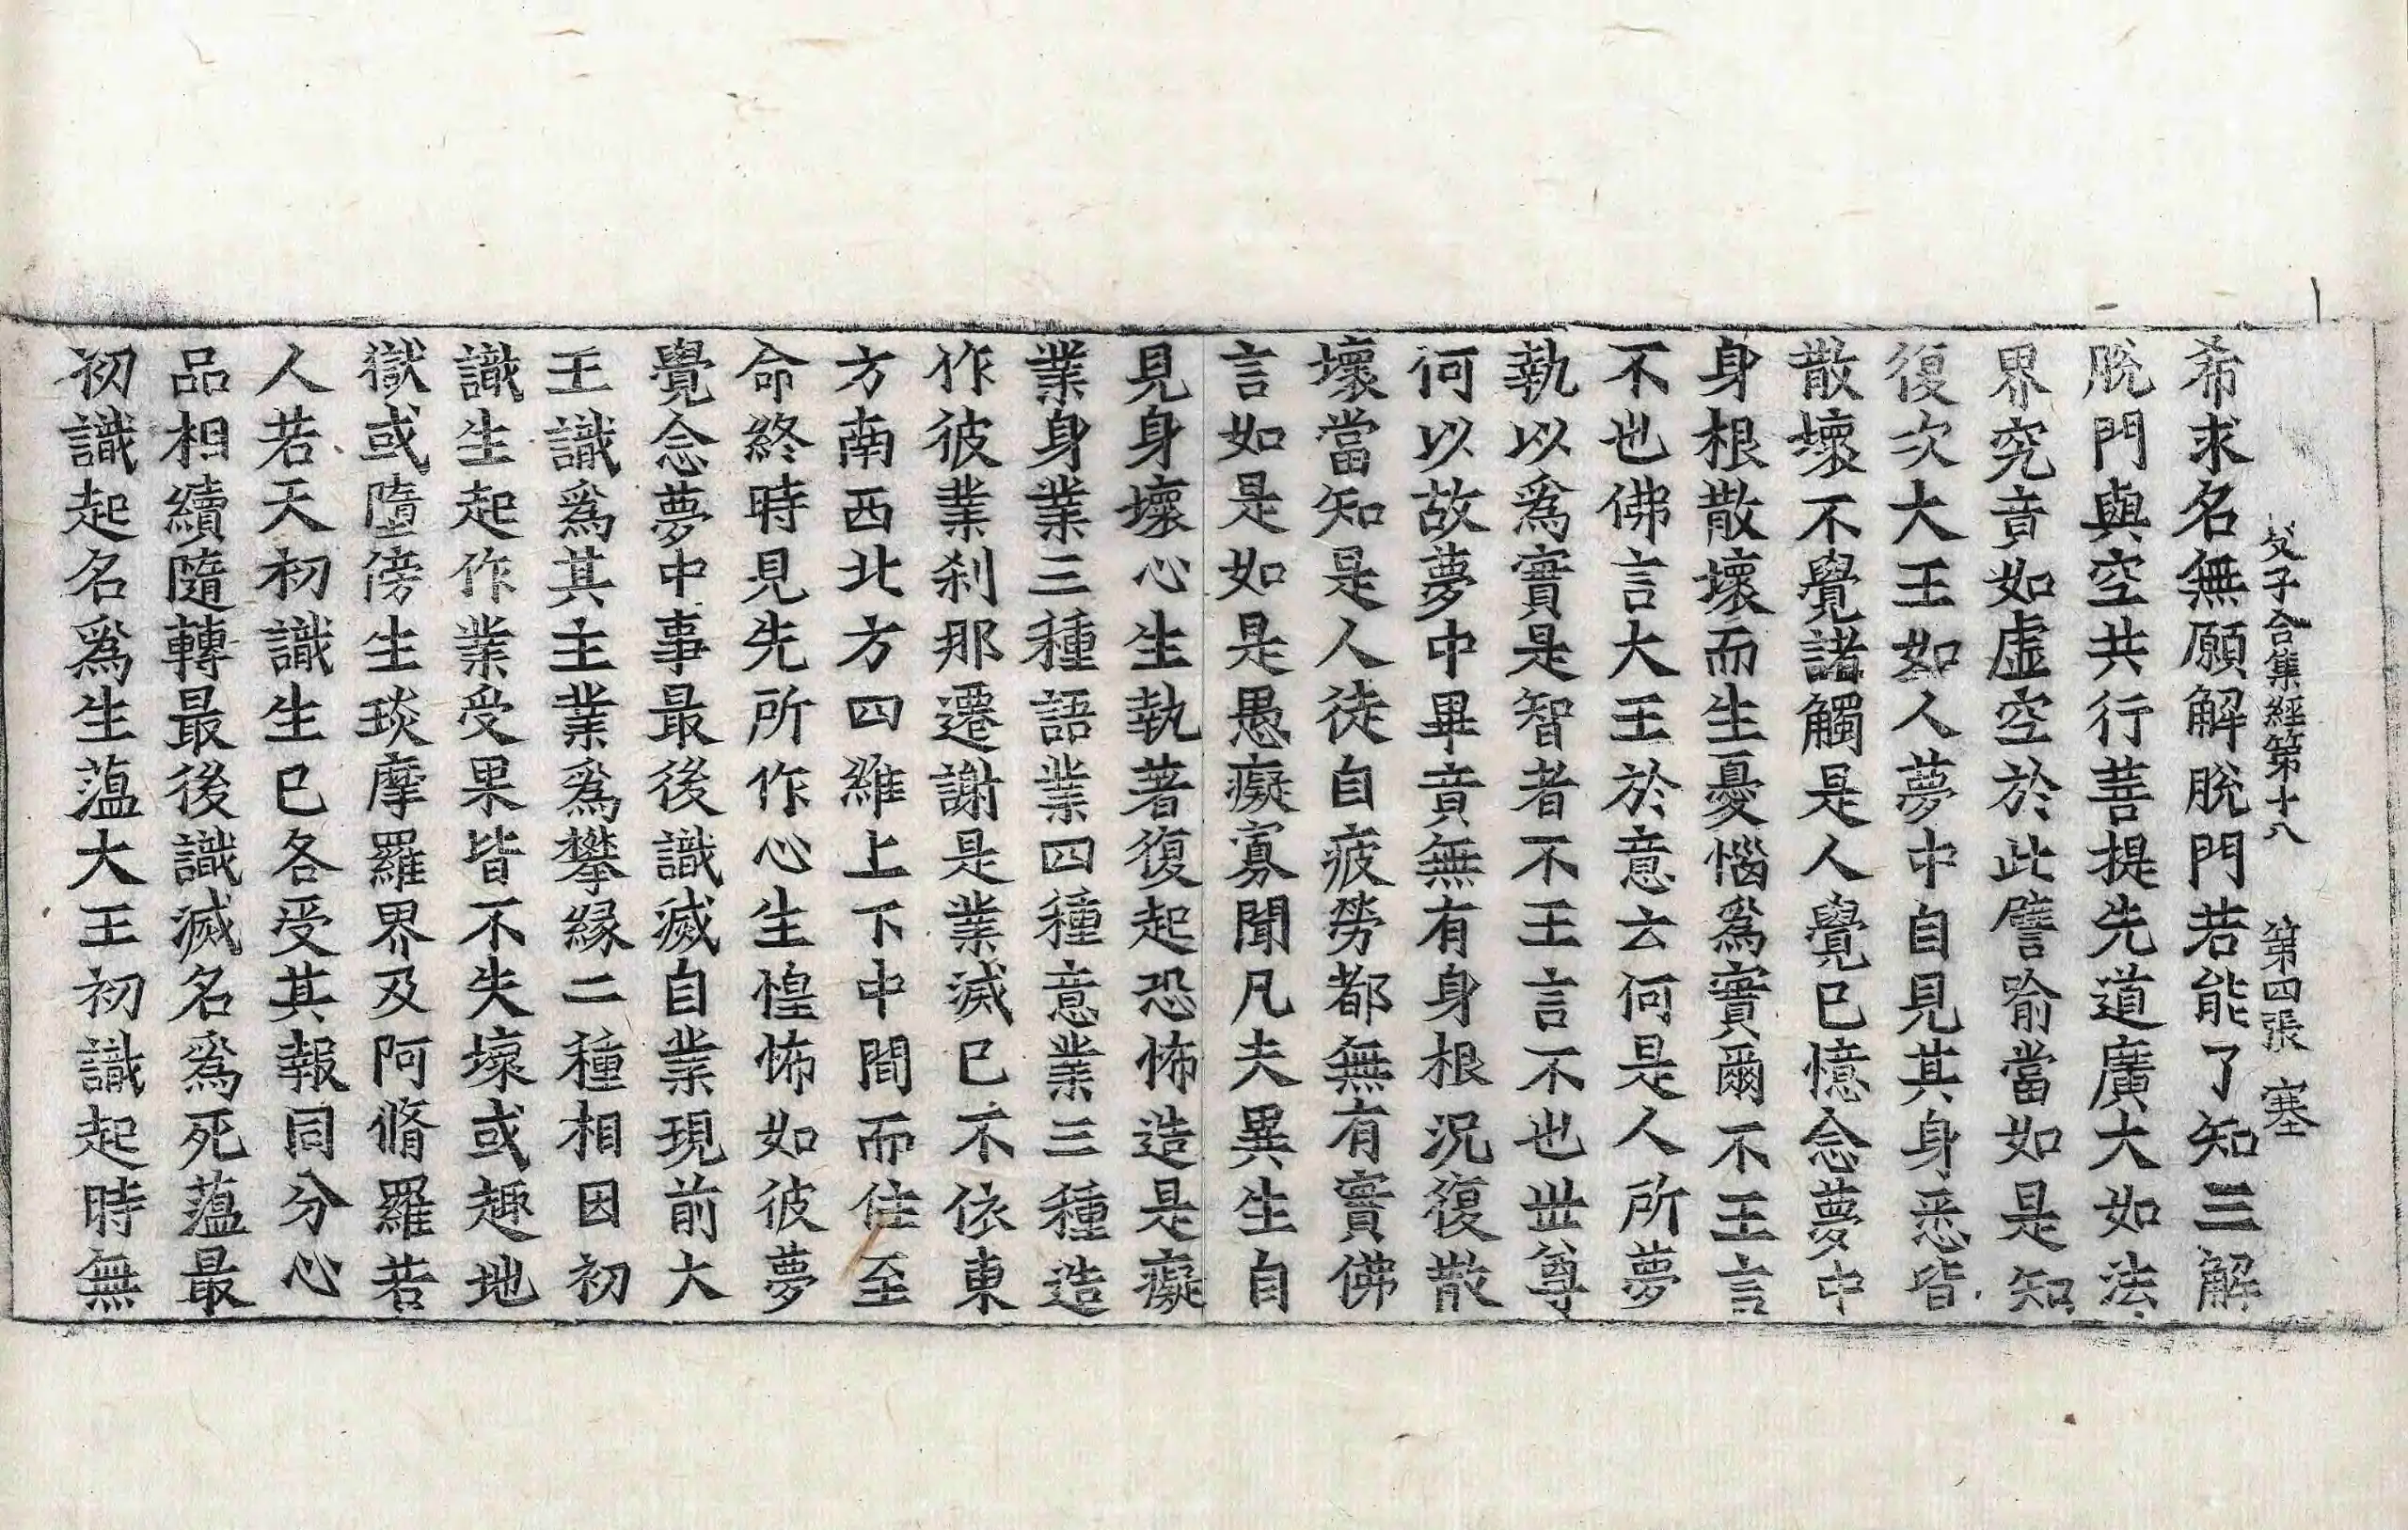 父子合集經第十八 第四張 塞
希求名無願解脫門若能了知三解
脫門與空共行菩提先道廣大如法
界究竟如虛空於此譬喻當如是知
復次大王如人夢中自見其身悉皆
散壞不覺諸觸是人覺已憶念夢中
身根散壞而生憂惱爲實爾不王言
不也佛言大王於意云何是人所夢
執以爲實是智者不王言不也世尊
何以故夢中畢竟無有身根況復散
壞當知是人徒自疲勞都無有實佛
言如是如是愚癡寡聞凡夫異生自
見身壞心生執著復起恐怖造是癡
業身業三種語業四種意業三種造
作彼業刹那遷謝是業滅已不依東
方南西北方四維上下中間而住至
命終時見先所作心生惶怖如彼夢
覺念夢中事最後識滅自業現前大
王識爲其主業爲攀緣二種相因初
識生起作業受果皆不失壞或趣地
獄或墮傍生琰摩羅界及阿脩羅若
人若天初識生已各受其報同分心
品相續隨轉最後識滅名爲死蘊最
初識起名爲生蘊大王初識起時無